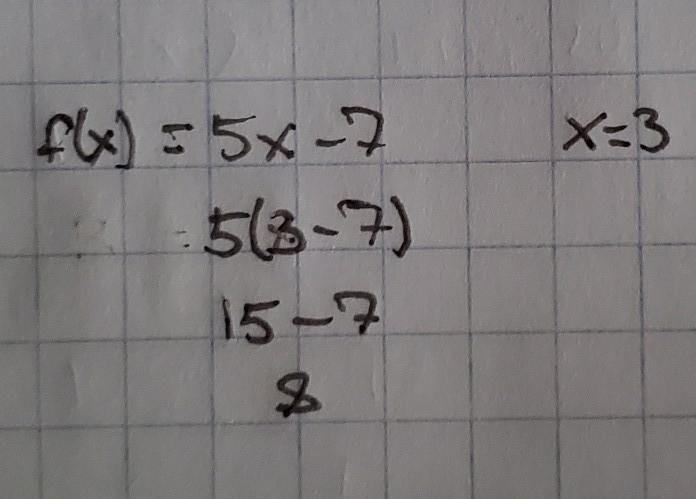 f(x) = 5x - 7 x = 3
= 5(3 - 7)
15 - 7
8